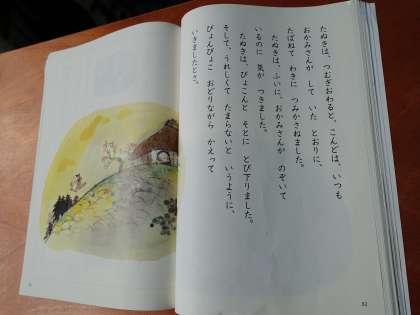 たぬきは、つむぎおわると、こんどは、いつも
おかみさんが して いた とおりに、
たばねて わきに つみかさねました。
たぬきは、ふいに、おかみさんが のぞいて
いるのに 気が つきました。
たぬきは、ぴょこんと そとに とび下りました。
そして、うれしくて たまらないと いうように、
ぴょんぴょこ おどりながら かえって
いきましたとさ。
52